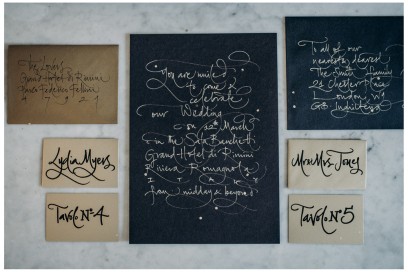 The Lovers
Grand Hotel di Rimini
Parco Federico Fellini
4 7 9 2 1
Lydia Myers
Tavolo Nº4
You are invited
to come &
celebrate
our Wedding
on 12th March
in the Sala Banchetti
Grand Hotel di Rimini
Riviera Romagnola
I T A L Y
from midday & beyond
To all of our
nearest & dearest
The Smith Family
23 Chester
London
GB
Mr&Mrs Jones
Tavolo Nº5